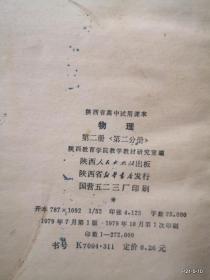 陕西省高中试用课本
物理
第二册 (第二分册)
陕西教育学院教学教材研究室编
陕西人民出版社出版
陕西省新华书店发行
国营五二三厂印刷
开本 787×1092 1/32 印张 4.125 字数 78,000
1979年7月第1版 1979年10月第1次印刷
印数 1—272,000
书号 K7094·311 定价 0.26元